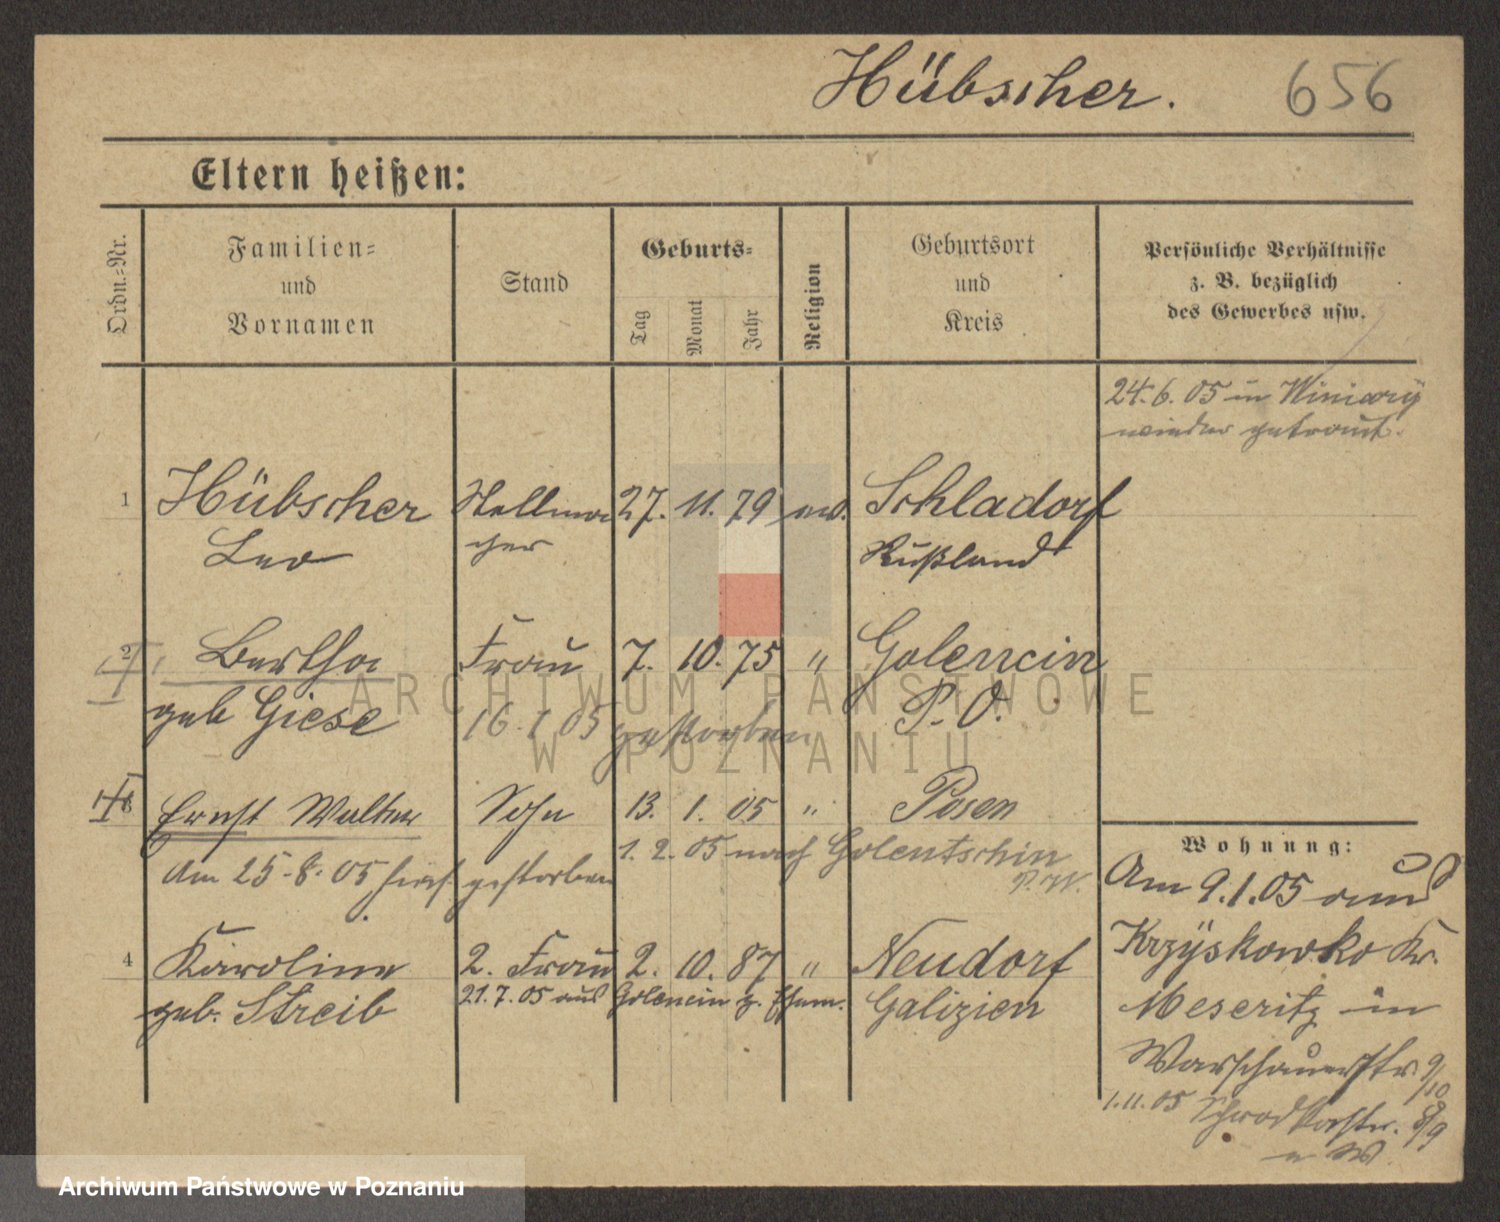 Hübscher. 656
Eltern heißen:
Ordn.=Nr.
Familien=
und
Vornamen
Stand
Geburts=
Tag
Monat
Jahr
Religion
Geburtsort
und
Kreis
Persönliche Verhältnisse
z. B. bezüglich
des Gewerbes usw.
24.6.05 in Winiary
wieder getraut.
1 Hübscher Stellma 27. 11. 79 ev. Schladorf
Leo cher Rußland
2 Bertha Frau 7. 10. 75 " Golencin
geb Giese P. O.
16.1.05 gestorben
3 Ernst Walter Sohn 13. 1. 05 " Posen
1. 2. 05 nach Golentschin
P.W.
Am 25.8.05 hier gestorben
4 Karoline 2. Frau 2. 10. 87 " Neudorf
geb. Streib 21.7.05 aus Golencin z. Ehem. Galizien
Wohnung:
Am 9.1.05 aus
Krzyskowko Kr.
Meseritz in
Warschauerstr 9/10
1.11.05 Schrodkastr. 8/9
ARCHIWUM PAŃSTWOWE
W POZNANIU
Archiwum Państwowe w Poznaniu